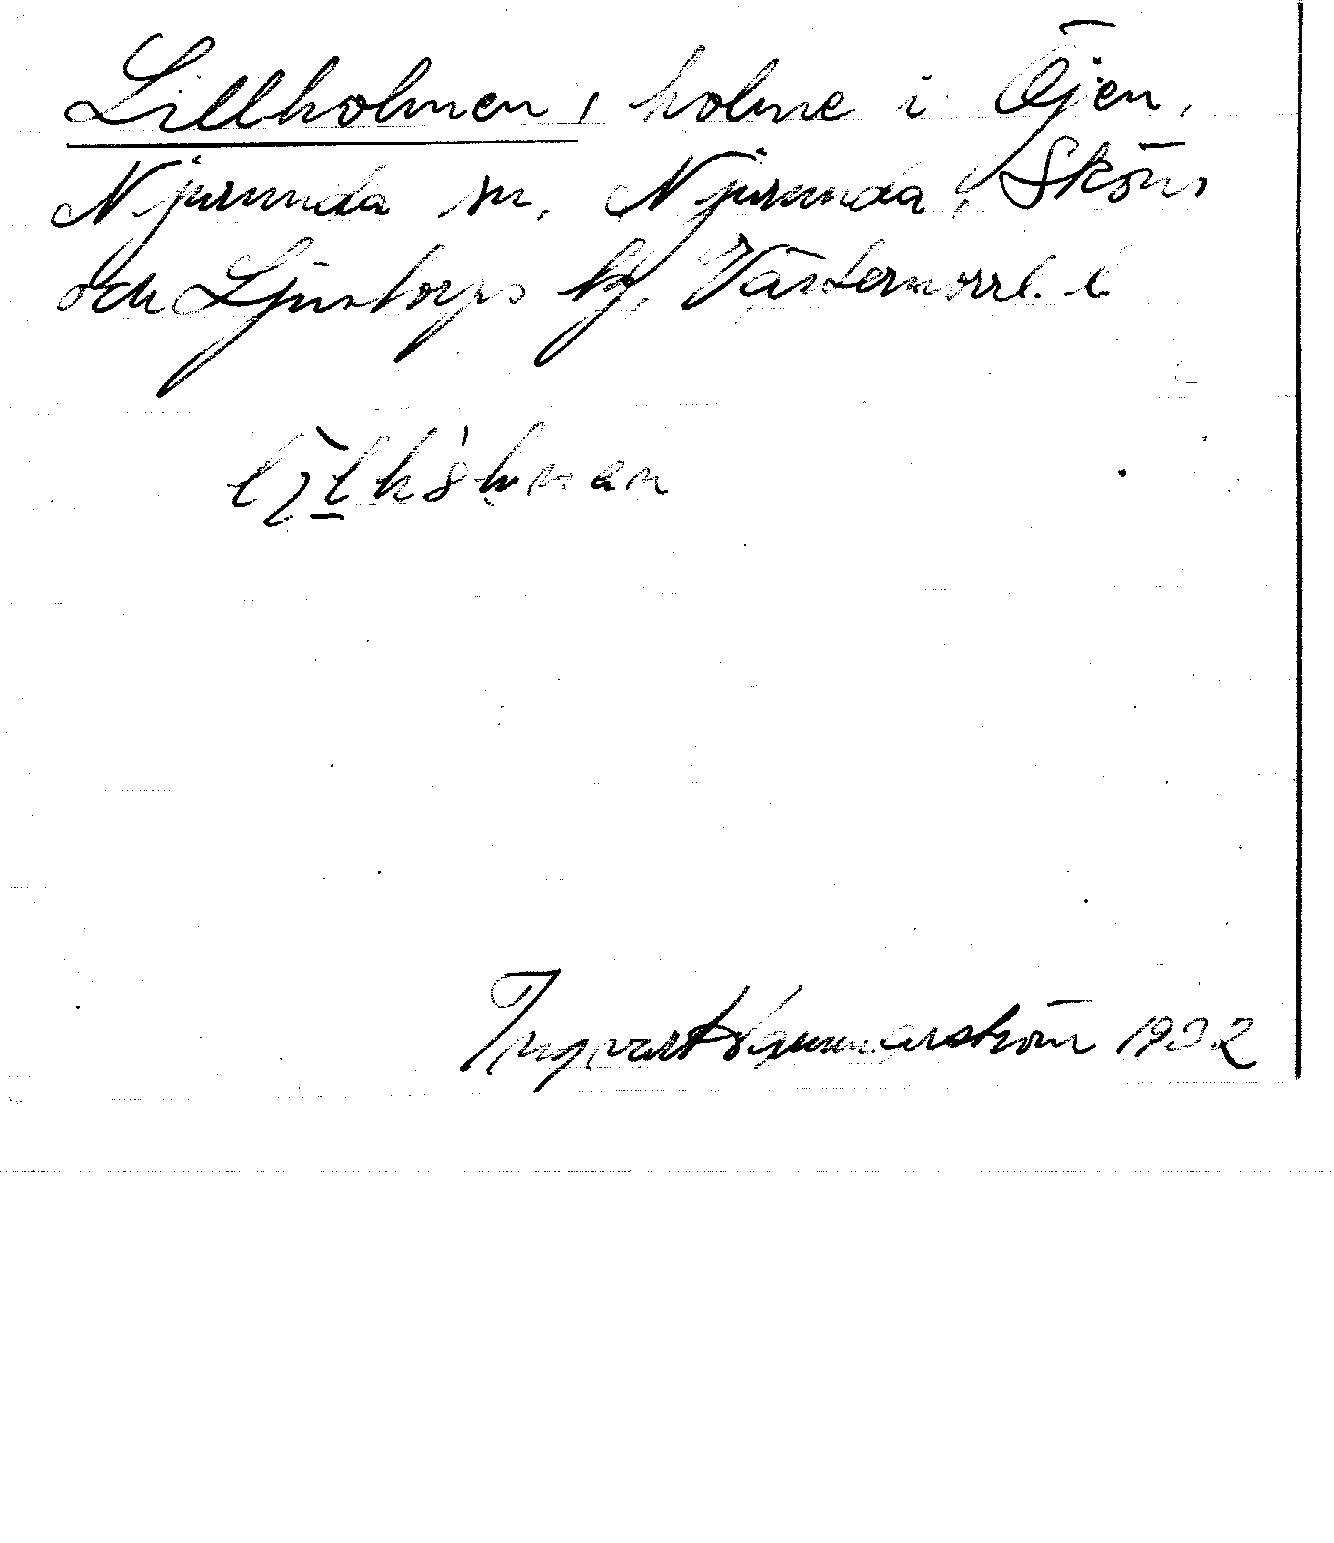 Lillholmen, holme i Öjen,
Njurunda sn, Njurunda, Sköns
och Ljustorps tg, Västernorrl. l
Ingvart Hammarström 1932